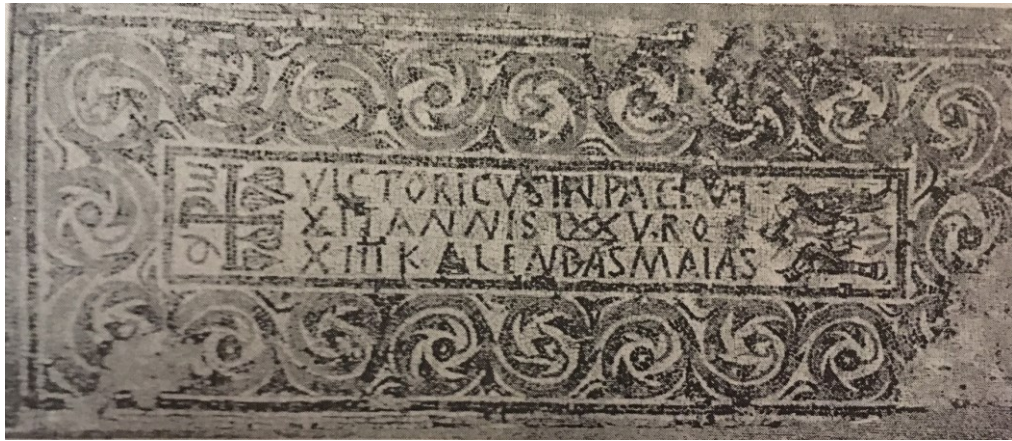 VICTORICVS IN PACE VI
XIT ANNIS LXXV.RQ
XIII KALENBAS MAIAS